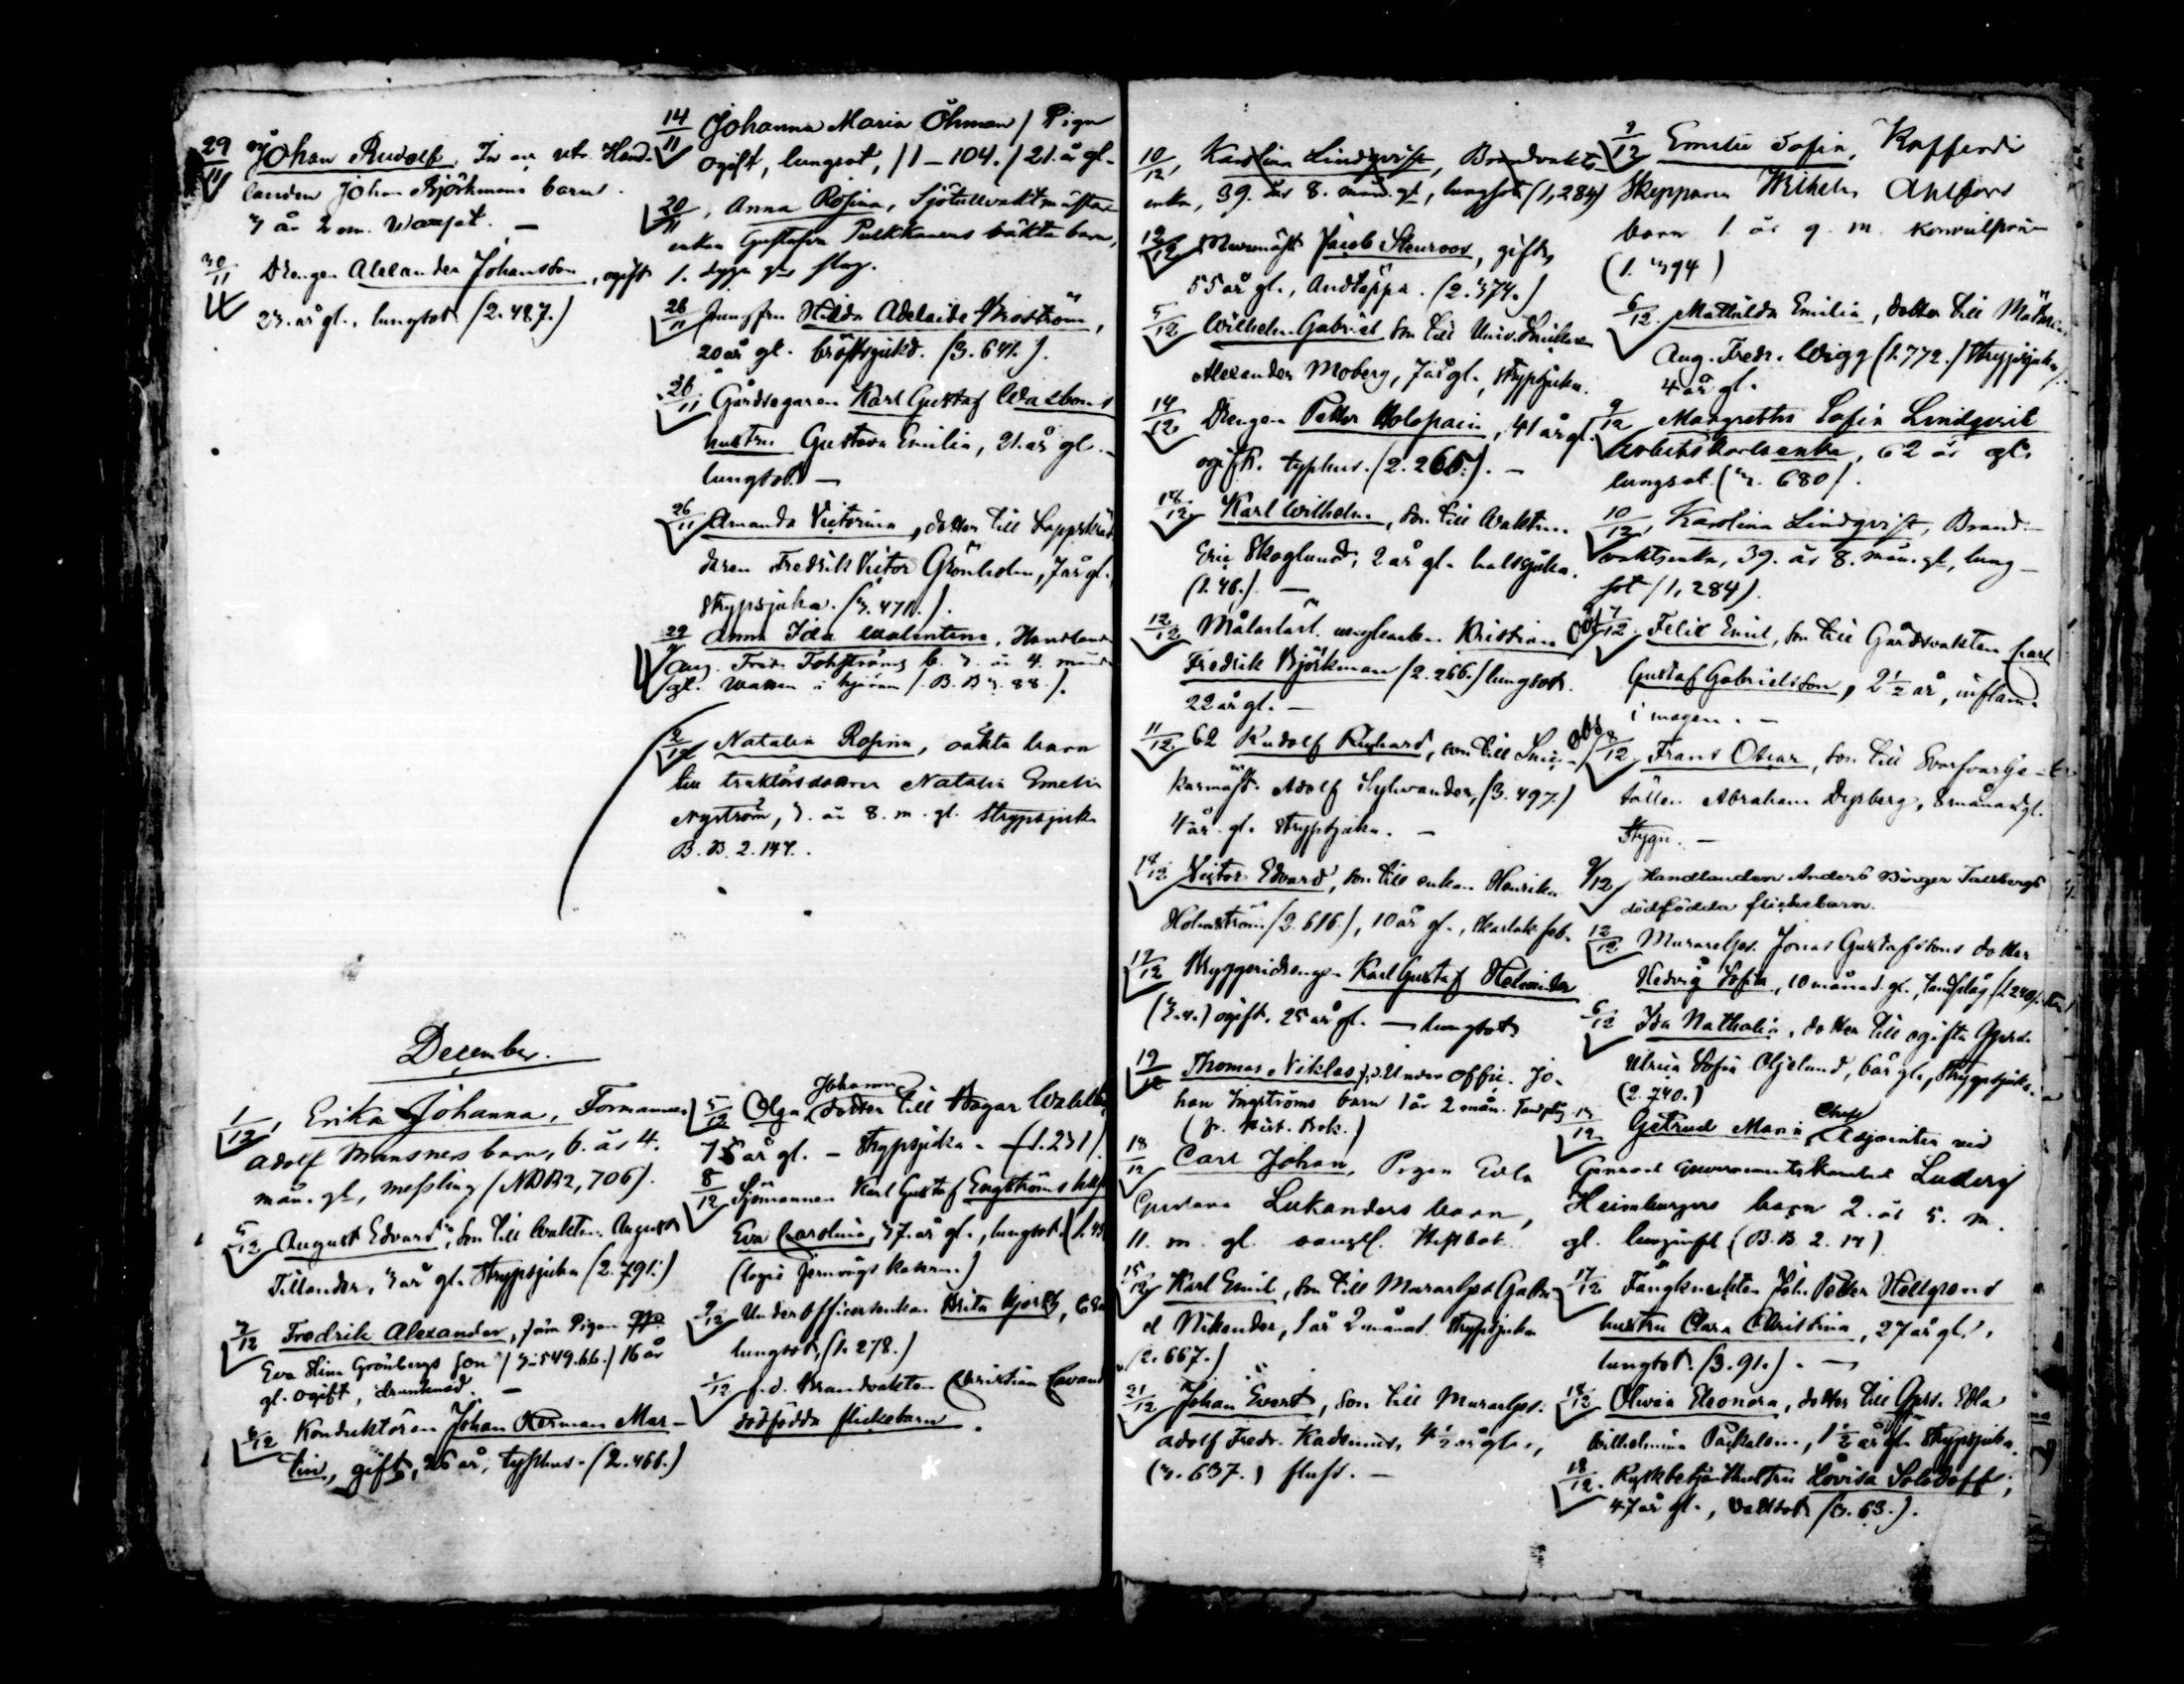 29/11 Johan Rudolf, Hand-
landen Johan Björkmans barn
3 år 2 m.
30/11 Drengen Alexander Johansson, ogift
23. år gl., lungsot. (2.487.)
14/11 Johanna Maria Öhman / Piga
ogift, lungsot, / 1 – 104. / 21. år gl.
20/11, Anna Rosina, Sjötullvaktmästare
enkan Gustafva Pulkkanens oäkta barn,
1. dygn gl. slag.
26/11 Jungfru Hilda Adelaide
20 år gl. bröstsjukd. (3.641.).
26/11 Gårdsegaren Karl Gustaf
hustru Gustava Emilia, 21. år gl. –
lungsot. —
26/11 Amanda Victorina, dotter till
daren Fredrik Victor Grönholm, 7 år gl.,
Strypsjuka. (3.471.).
29/11 Anna Ida Walentina, Handland
Aug. Fredr. b. 3. år 4. mån
gl. Watten i hjernan (B. B 3. 88.).
2/12 Natalia Rosina, oäkta barn
till Natalia Emelie
Nyström, 3. år 8. m. gl. Strypsjuka
B. B. 2. 147.
December.
1/12, Erika Johanna, Formannen
Adolf Mansners barn, 6. år 4.
mån. gl., messling (NDB2, 706).
5/12 August Edvard, son till Vaktm. August
Tillander, 3 år gl. Strypsjuka (2.791.)
3/12 Fredrik Alexander, Pigan
Eva Stina Grönbergs son / 3.549.66.) 16 år
gl. ogift, drunknad. —
6/12 Konduktören Johan Herman Mar-
tin, gift, 26 år, typhus. (2.466.)
5/12 Olga Johanna dotter till Hagar
7 år gl. – Strypsjuka. – (1.231)
8/12 Sjömannen Karl Gustaf Engströms
Eva Carolina, 37. år gl., lungsot.
(logis Jernvägs kasern.)
9/12 Underofficersenkan Brita Björk,
lungsot, (1.278.)
1/12 f.d. Brandvakten Christian
dödfödda flickebarn.
10/12, Karolina Lindqvist, Brandvakts-
enka, 39. år 8. mån. gl., lungsot (1,284)
12/12 Murmäst. Jacob Stenroos, gift,
55 år gl., Andtäppa. (2.374.)
5/12 Wilhelm Gabriel son till
Alexander Moberg, 7 år gl., Strypsjuka.
14/12 Drengen Petter Holopain, 41 år gl.
ogift. typhus. (2.265.). –
18/12 Karl Wilhelm, son till Vaktm.
Eric Skoglund, 2 år gl. halssjuka.
(1.46.) —
12/12 Målarlärl. Kristian
Fredrik Björkman (2.266.) lungsot.
22 år gl. —
11/12 62 Rudolf Richard, son till Snic-
karmäst. Adolf Sylvander, (3.497.)
4 år gl. Strypsjuka. –
14/12 Victor Edvard, son till enkan Henrika
Holmström (2.616.), 10 år gl., Skarlak. feb.
17/12 Bryggeridrengen Karl Gustaf Helander
ogift. 25 år gl. — lungsot
19/12 Thomas Niklas, f.d. Under Offic. Jo-
han Ingströms barn 1 år 2 mån. Tandslag
18/12 Carl Johan, Pigan Edla
Gustava Lukanders barn,
11. m. gl.
15/12 Karl Emil, son till Murarlgs. Gabri-
el Nikander, 1 år 2 månad. Strypsjuka
(2.667.)
21/12 Johan Evert, son till Murarlgs.
Adolf Fredr. Kadenius, 4½ år gl.,
(3.637.) —
9/12 Emelie Sofia, Kofferdi
Skepparen Wilhelm Ahlfors
barn 1. år 9. m. konvulsion
(1. 394)
6/12. Mathilda Emilia, dotter till
Aug. Fredr. Wigg (1.772.) Strypsjuka.
4 år gl.
9/12 Margretha Sofia Lindqvist
Arbetskarlsenka, 62 år gl.
lungsot (3. 680).
10/12, Karolina Lindqvist, Brand-
vaktsenka, 39. år 8. mån. gl., lung-
sot (1,284).
Obs 7/12. Felix Emil, son till Gårdsvakten Carl
Gustaf Gabrielsson, 2½ år, inflam.
i magen. –
Obs 8/12. Frans Oskar, son till
Abraham Dysberg, 8 månad gl.
Stygn. —
9/12 Handlanden Anders Birger Tallbergs
dödfödda flickebarn.
12/12 Murarelgs. Jonas Gustafssons dotter
Hedvig Sofia, 10 månad. gl., tandslag
6/12 Ida Nathalia, dotter till ogifta
Ulrica Sofia Oljelund, 6 år gl., Strypsjuka.
(2.740.)
13/12. Getrud Maria, Chefs Adjointen vid
General Guvernements Ludvig
Heimburgers barn 2. år 5. m.
gl. lunginfl. (B.B. 2. 17)
17/12 Fångknekten Joh. Petter Hellgrens
hustru Clara Christina, 27 år gl.,
lungsot. (3.91.). —
18/12 Olivia Eleonora, dotter till Edla
Wilhelmina, 1½ år gl. Strypsjuka.
18/12. hustru Lovisa Solodoff,
47 år gl., vattsot (3.63.).